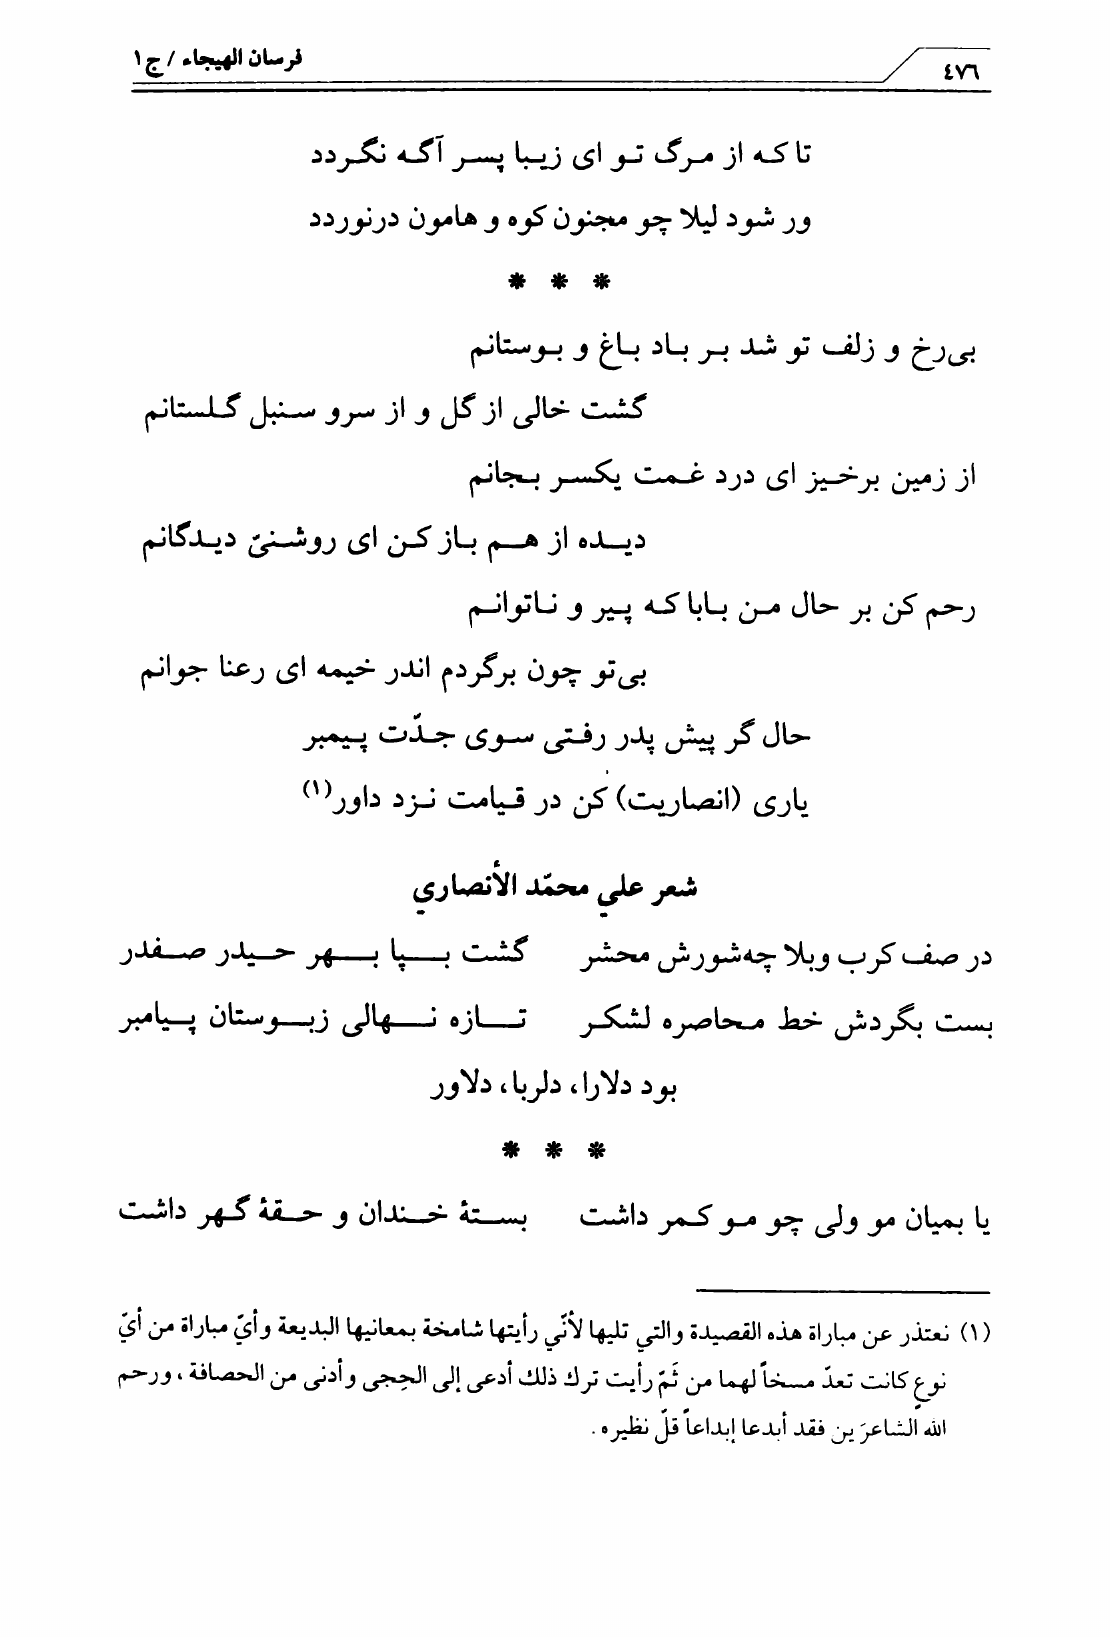 ٤٧٦
فرسان الهيجاء / ج ١
تا که از مرگ تو ای زیبا پسر آگه نگردد
ور شود لیلا چو مجنون کوه و هامون درنوردد
* * *
بی‌رخ و زلف تو شد بر باد باغ و بوستانم
گشت خالی از گل و از سرو سنبل گلستانم
از زمین برخیز ای درد غمت یکسر بجانم
دیده از هم باز کن ای روشنیّ دیدگانم
رحم کن بر حال من بابا که پیر و ناتوانم
بی‌تو چون برگردم اندر خیمه ای رعنا جوانم
حال گر پیش پدر رفتی سوی جدّت پیمبر
یاری (انصاریت) کن در قیامت نزد داور(١)
شعر علي محمّد الأنصاري
در صف کرب وبلا چه‌شورش محشر گشت بپا بهر حیدر صفدر
بست بگردش خط محاصره لشکر تازه نهالی زبوستان پیامبر
بود دلارا، دلربا، دلاور
* * *
یا بمیان مو ولی چو مو کمر داشت بستهٔ خندان و حقهٔ گهر داشت
(١) نعتذر عن مباراة هذه القصيدة والتي تليها لأنّي رأيتها شامخة بمعانيها البديعة وأيّ مباراة من أيّ
نوعٍ كانت تعدّ مسخاً لهما من ثَمّ رأيت ترك ذلك أدعى إلى الحِجى وأدنى من الحصافة، ورحم
الله الشاعرَين فقد أبدعا إبداعاً قلّ نظيره.